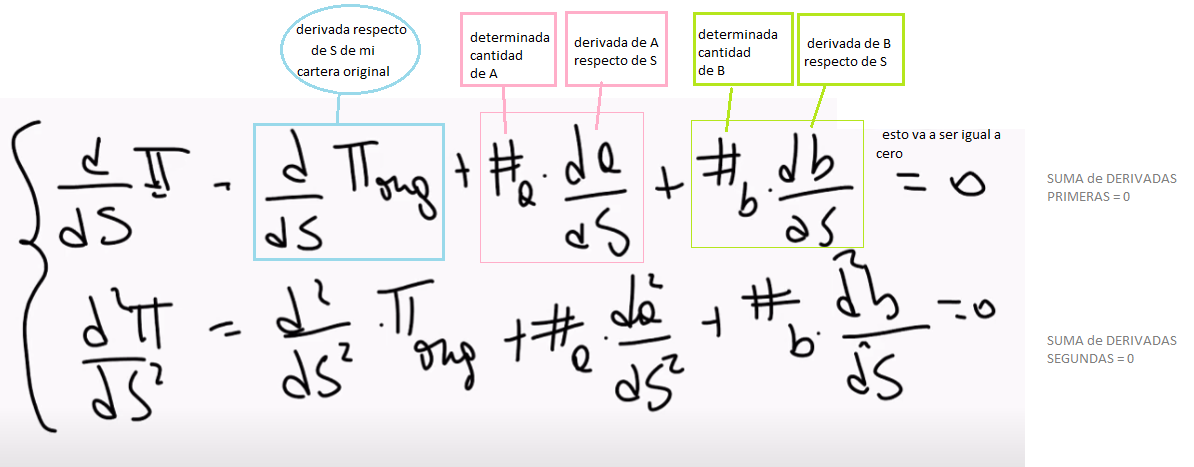 derivada respecto
de S de mi
cartera original
determinada
cantidad
de A
derivada de A
respecto de S
determinada
cantidad
de B
derivada de B
respecto de S
esto va a ser igual a
cero
d/dS π - d/dS π orig + #a · da/dS + #b · db/dS = 0
SUMA de DERIVADAS
PRIMERAS = 0
d²π/dS² = d²/dS² · π orig + #a · da²/dS² + #b · d²b/dS = 0
SUMA de DERIVADAS
SEGUNDAS = 0